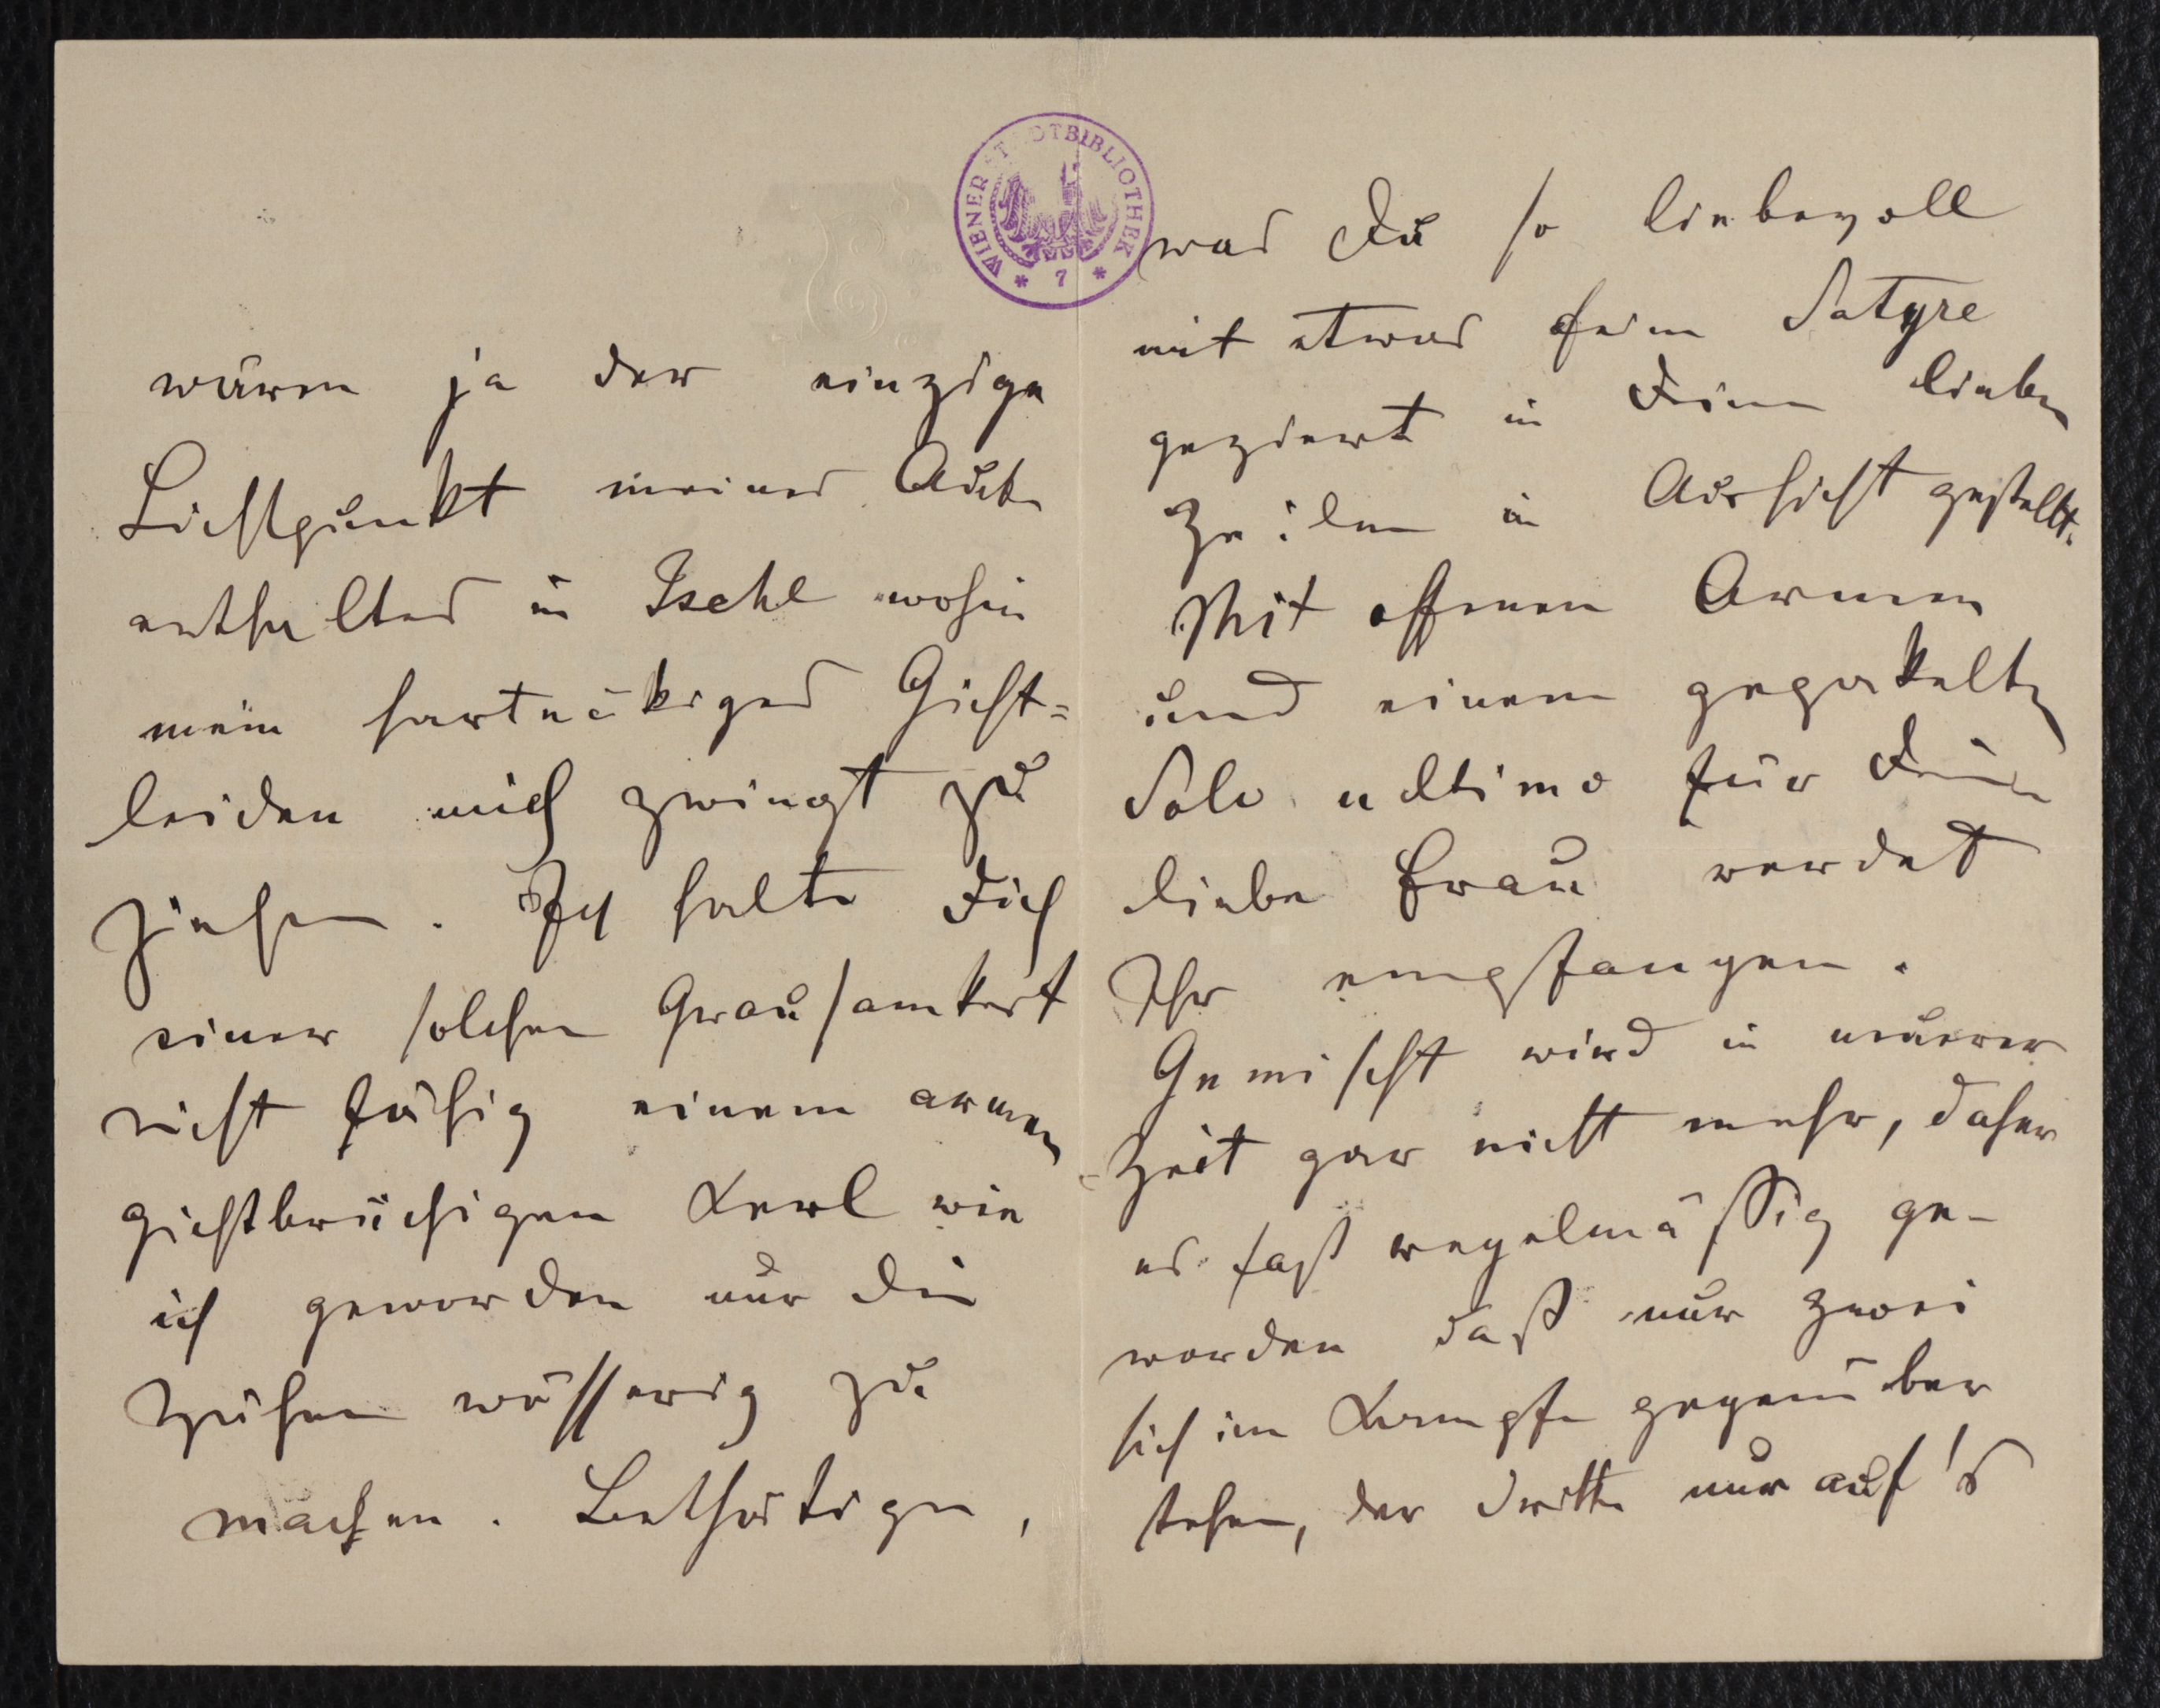 wären ja der einzige
Lichtpunkt meines Aufent-
enthaltes in Ischl wohin
mein hartnäkiges Gicht=
leiden mich zwingt zu
ziehen. Ich halte Dich
einer solchen Grausamkeit
nicht fähig einem armen
gichtbrüchigen Kerl wie
ich geworden nur die
Zähne wässerig zu
machen. Bethätige,
WIENER STADTBIBLIOTHEK
* 7 *
was Du so liebevoll
mit etwas feiner Satyre
geziert in Deinen lieben
Zeilen in Aussicht gestellt.
Mit offenen Armen
und einem gepakelten
Solo ultimo für Deine
liebe Frau werdet
Ihr empfangen.
Gemischt wird in neuerer
Zeit gar nicht mehr, daher
es fast regelmässig ge-
worden daß nur zwei
sich im Kampfe gegenüber
stehen, der dritte nur auf's